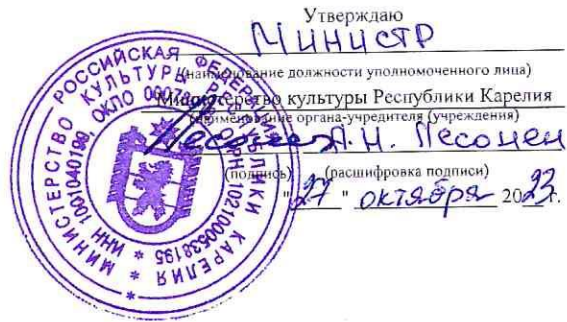 Утверждаю
Министр
(наименование должности уполномоченного лица)
Министерство культуры Республики Карелия
(наименование органа-учредителя (учреждения)
А.Н. Лесонен
(подпись) (расшифровка подписи)
"27" октября 2023г.
РОССИЙСКАЯ ФЕДЕРАЦИЯ
МИНИСТЕРСТВО КУЛЬТУРЫ РЕСПУБЛИКИ КАРЕЛИЯ
ИНН 1001040199, ОКПО ОГРН 1021000538195